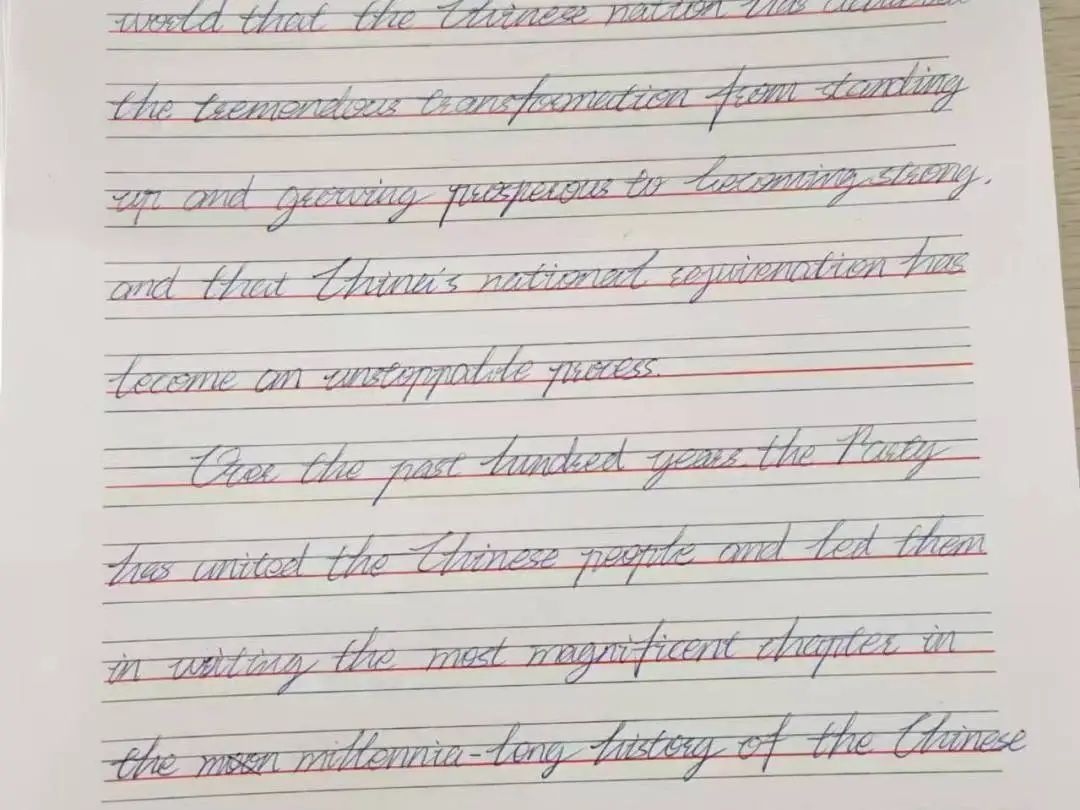 world that the Chinese nation has achieved
the tremendous transformation from standing
up and growing prosperous to becoming strong,
and that China's national rejuvenation has
become an unstoppable process.
Over the past hundred years. the Party
has united the Chinese people and led them
in writing the most magnificent chapter in
the millennia-long history of the Chinese